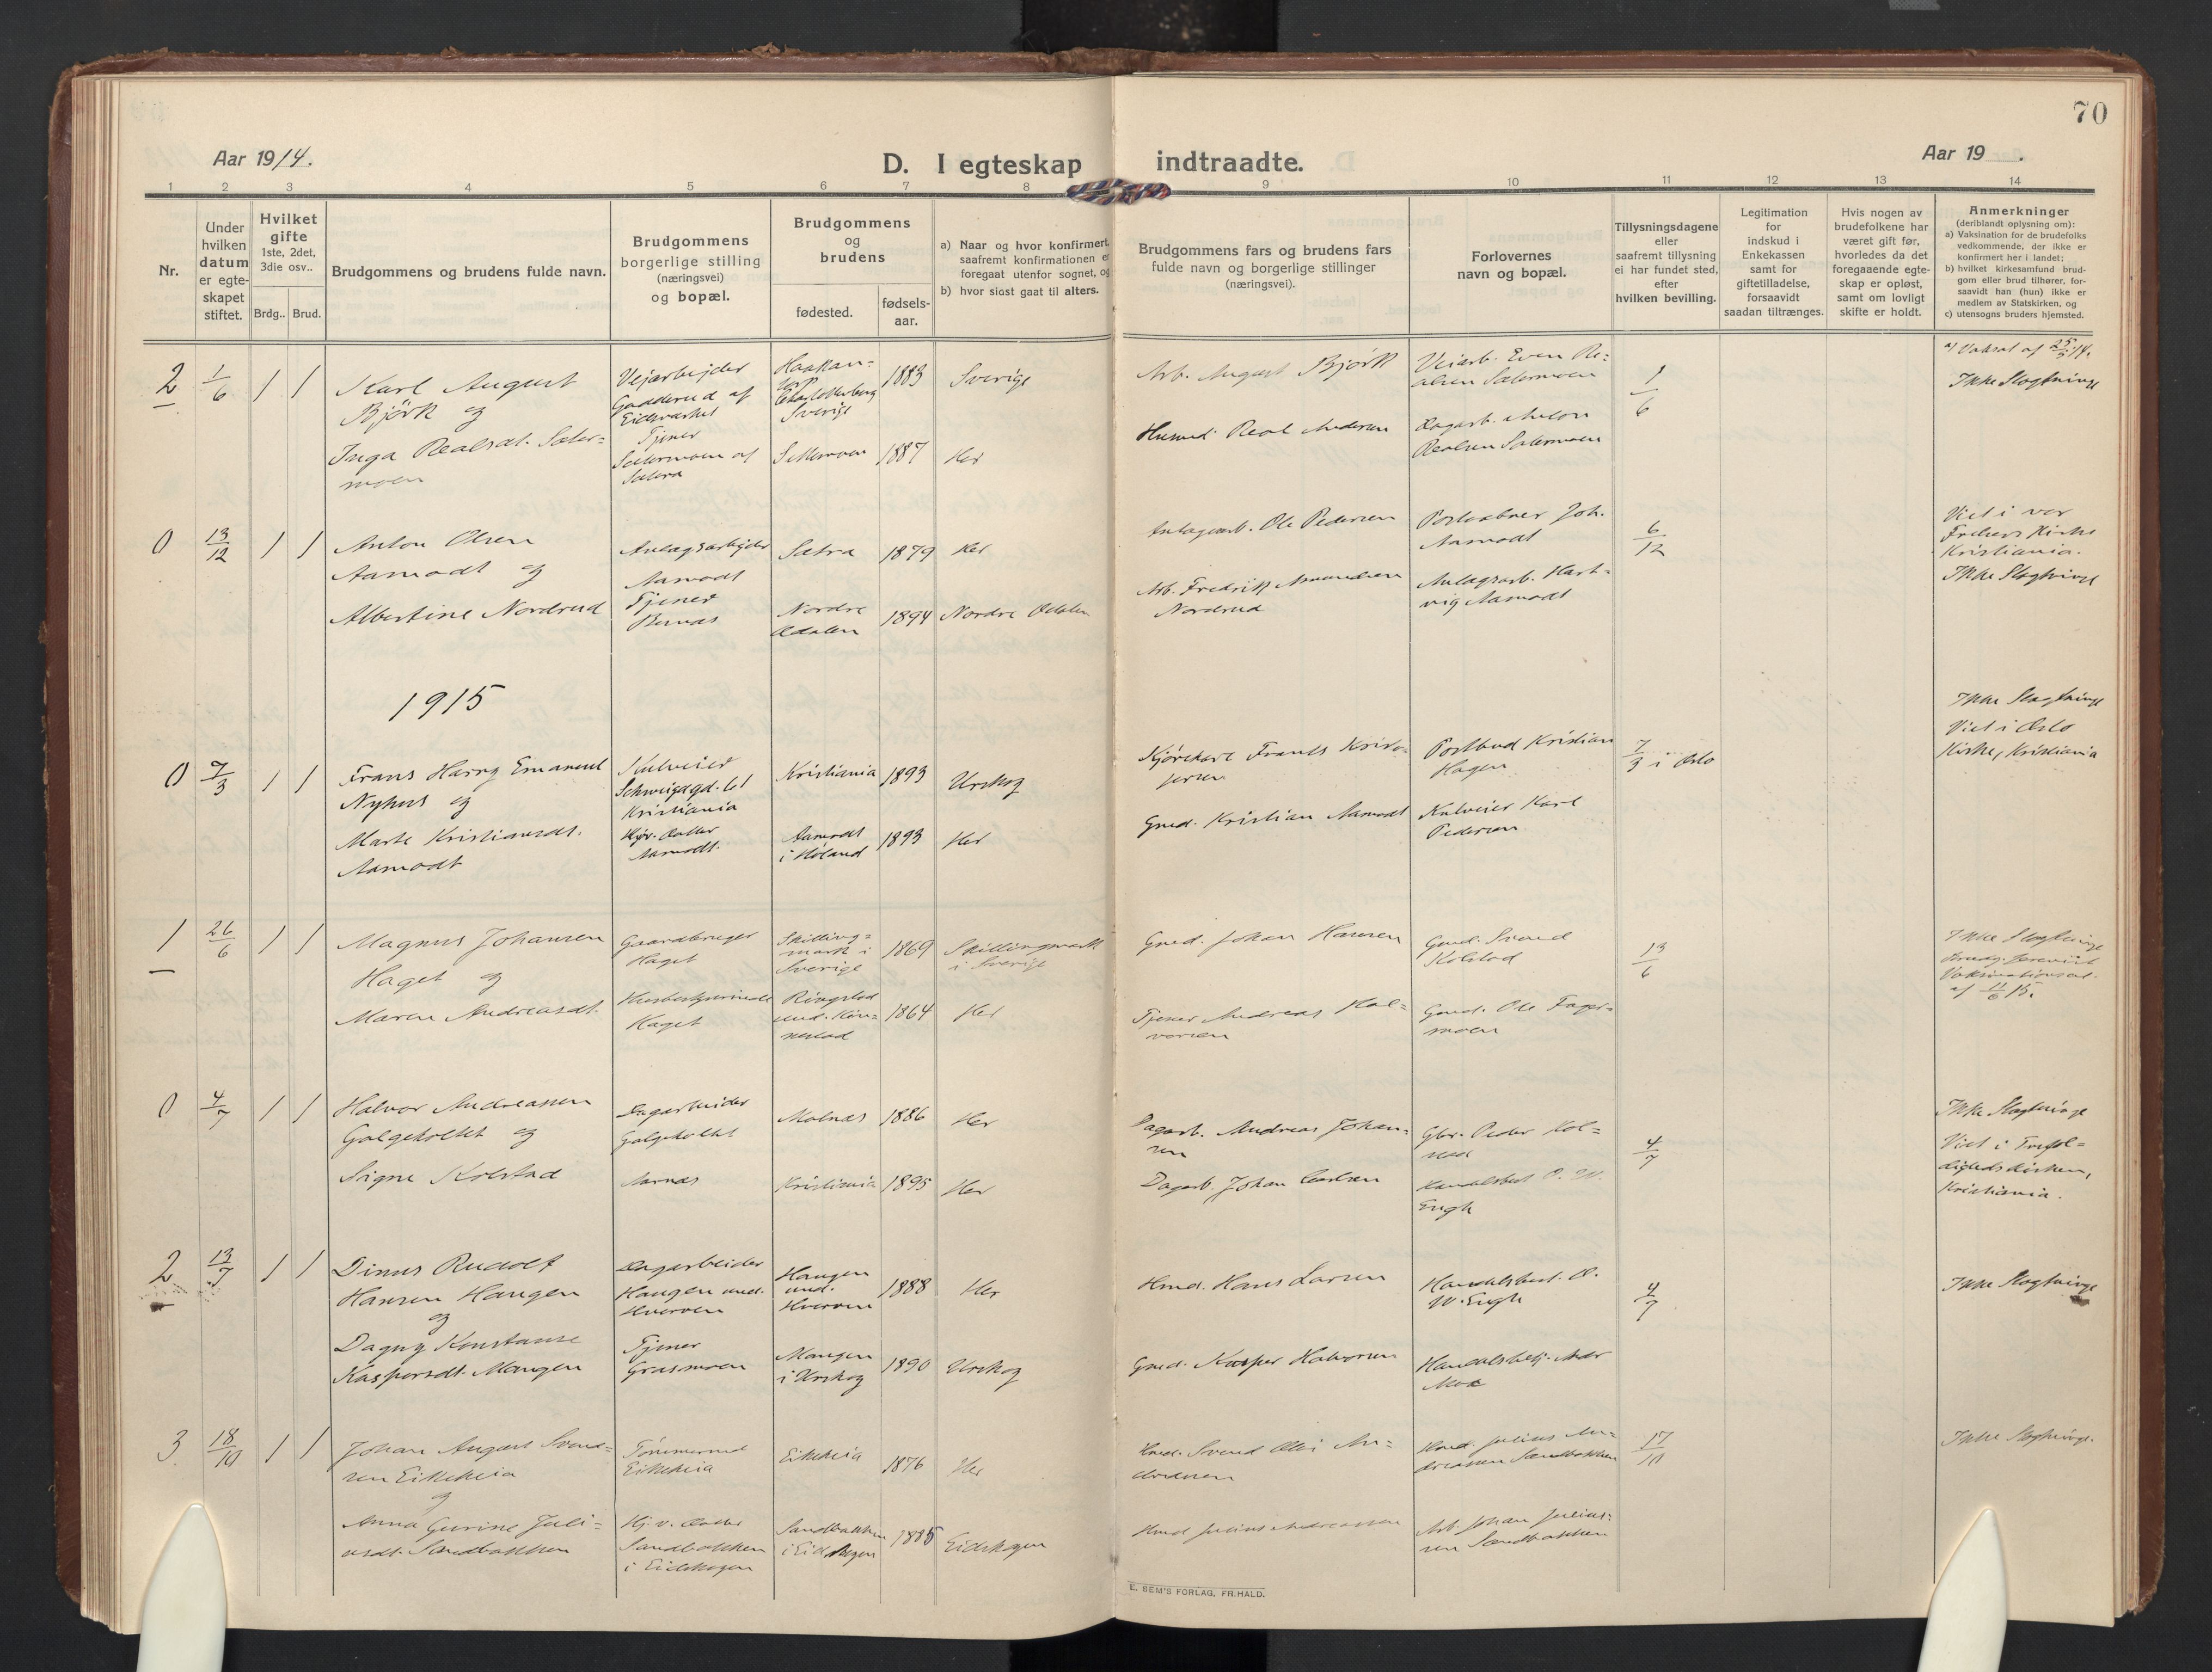 70
Aar 1914.
D. I egteskap indtraadte.
Aar 19 .
1 2 3 4 5 6 7 8 9 10 11 12 13 14
Nr.
Under
hvilken
datum
er egte-
skapet
stiftet.
Hvilket
gifte
1ste, 2det,
3die osv..
Brdg.. Brud.
Brudgommens og brudens fulde navn.
Brudgommens
borgerlige stilling
(næringsvei)
og bopæl.
Brudgommens
og
brudens
fødested.
fødsels-
aar.
a) Naar og hvor konfirmert,
saafremt konfirmationen er
foregaat utenfor sognet, og
b) hvor sidst gaat til alters.
Brudgommens fars og brudens fars
fulde navn og borgerlige stillinger
(næringsvei).
Forlovernes
navn og bopæl.
Tillysningsdagene
eller
saafremt tillysning
ei har fundet sted,
efter
hvilken bevilling.
Legitimation
for
indskud i
Enkekassen
samt for
giftetilladelse,
forsaavidt
saadan tiltrænges.
Hvis nogen av
brudefolkene har
været gift før,
hvorledes da det
foregaaende egte-
skap er opløst,
samt om lovligt
skifte er holdt.
Anmerkninger
(deriblandt oplysning om):
a) Vaksination for de brudefolks
vedkommende, der ikke er
konfirmert her i landet;
b) hvilket kirkesamfund brud-
gom eller brud tilhører, for-
saavidt han (hun) ikke er
medlem av Statskirken, og
c) utensogns bruders hjemsted.
2
1/6
1 1
Karl August
Björk og
Inga Realsdt. Sæter-
moen
Vejarbejder
Gadderud af
Tjener
Sætermoen af
Sætra
Haakan-
Charlottenberg
Sverige
1883
Sverige
Sætermoen
1887
Her
Arb. August Björk
Husmd. Real Andersen
Veiarb. Even Re-
alsen Sætermoen
Dagarb. Anton
Realsen Sætermoen
1/6
a) Vaksat af 25/5 14.
Ikke Slegtninge
0
13/12
1 1
Anton Olsen
Aamodt og
Albertine Nordrud
Anlægsarbejder
Aamodt
Tjener
Sætra
1879
Her
Nordre
Odalen
1894
Nordre Odalen
Anlægsarb. Ole Pedersen
Arb. Fredrik Amundsen
Nordrud
Postaabner Joh.
Aamodt
Anlægsarb. Hart-
vig Aamodt
6/12
Viet i vor
Frelsers Kirke
Kristiania.
Ikke Slegtninge
1915
0
7/3
1 1
Frans Harry Emanuel
Nyhus og
Marte Kristiansdt.
Aamodt
Kulveier
Schweigagd. 61
Kristiania
Hjv. Datter
Aamodt.
Kristiania
1893
Urskog
Aamodt
i Høland
1893
Her
Kjørekarl Frants Kristo-
fersen
Gmd. Kristian Aamodt
Postbud Kristian
Hagen
Kulveier Karl
Pedersen
7/3 i Oslo
Ikke Slegtninge
Viet i Oslo
Kirke, Kristiania
1
26/6
1 1
Magnus Johansen
Haget og
Maren Andreasdt.
Gaardbruger
Haget
Husbestyrerinde
Haget
Skilling-
mark i
Sverige
1869
Skillingmark
i Sverige
Ringstad
und. Kin-
nestad
1864
Her
Gmd. Johan Hansen
Tjener Andreas Hal-
vorsen
Gmd. Svend
Kolstad
Gmd. Ole Fager-
moen
13/6
Ikke Slegtninge
Brudg. forevist
Vaksinationsat.
af 11/6 15.
0
4/7
1 1
Halvor Andreassen
Galgeholtet og
Signe Kolstad
Dagarbeider
Galgeholtet
Aarnæs
Molnæs
1886
Her
Kristiania
1895
Her
Dagarb. Andreas Johan-
sen
Dagarb. Johan Carlsen
Gbr. Peder Kol-
stad
Handelsbest. O. W.
Engh
4/7
Ikke Slegtninge
Viet i Trefol-
dighedskirken,
Kristiania.
2
13/7
1 1
Dinus Rudolf
Hansen Haugen
og
Dagny Konstanse
Kaspersdt. Mangen
Dagarbeider
Haugen und.
Hverven
Tjener
Grasmoen
Haugen
und.
Hverven
1888
Her
Mangen
i Urskog
1890
Urskog
Hmd. Hans Larsen
Gmd. Kasper Halvorsen
Handelsbest. O.
W. Engh
Handelsbetj.
Moe
4/7
Ikke Slegtninge
3
18/10
1 1
Johan August Svend-
sen Eikeheia
og
Anna Gurine Juli-
usdt. Sandbakken
Tømmermd
Eikeheia
Hj. v. Datter
Sandbakken
i Eidskogen
Eikeheia
1876
Her
Sandbakken
i Eidskogen
1885
Eidskogen
Hmd. Svend Olai An-
dreasen
Hmd Julius Andreassen
Hmd. Julius An-
dreassen Sandbakken
Arb. Johan Julius-
sen Sandbakken
17/10
Ikke Slegtninge.
E. SEM'S FORLAG, FR.HALD.